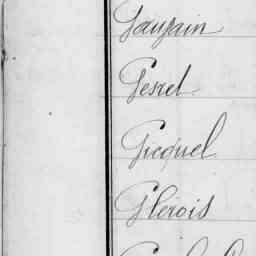 Gaupain
Gesrel
Gicquel
Glerois